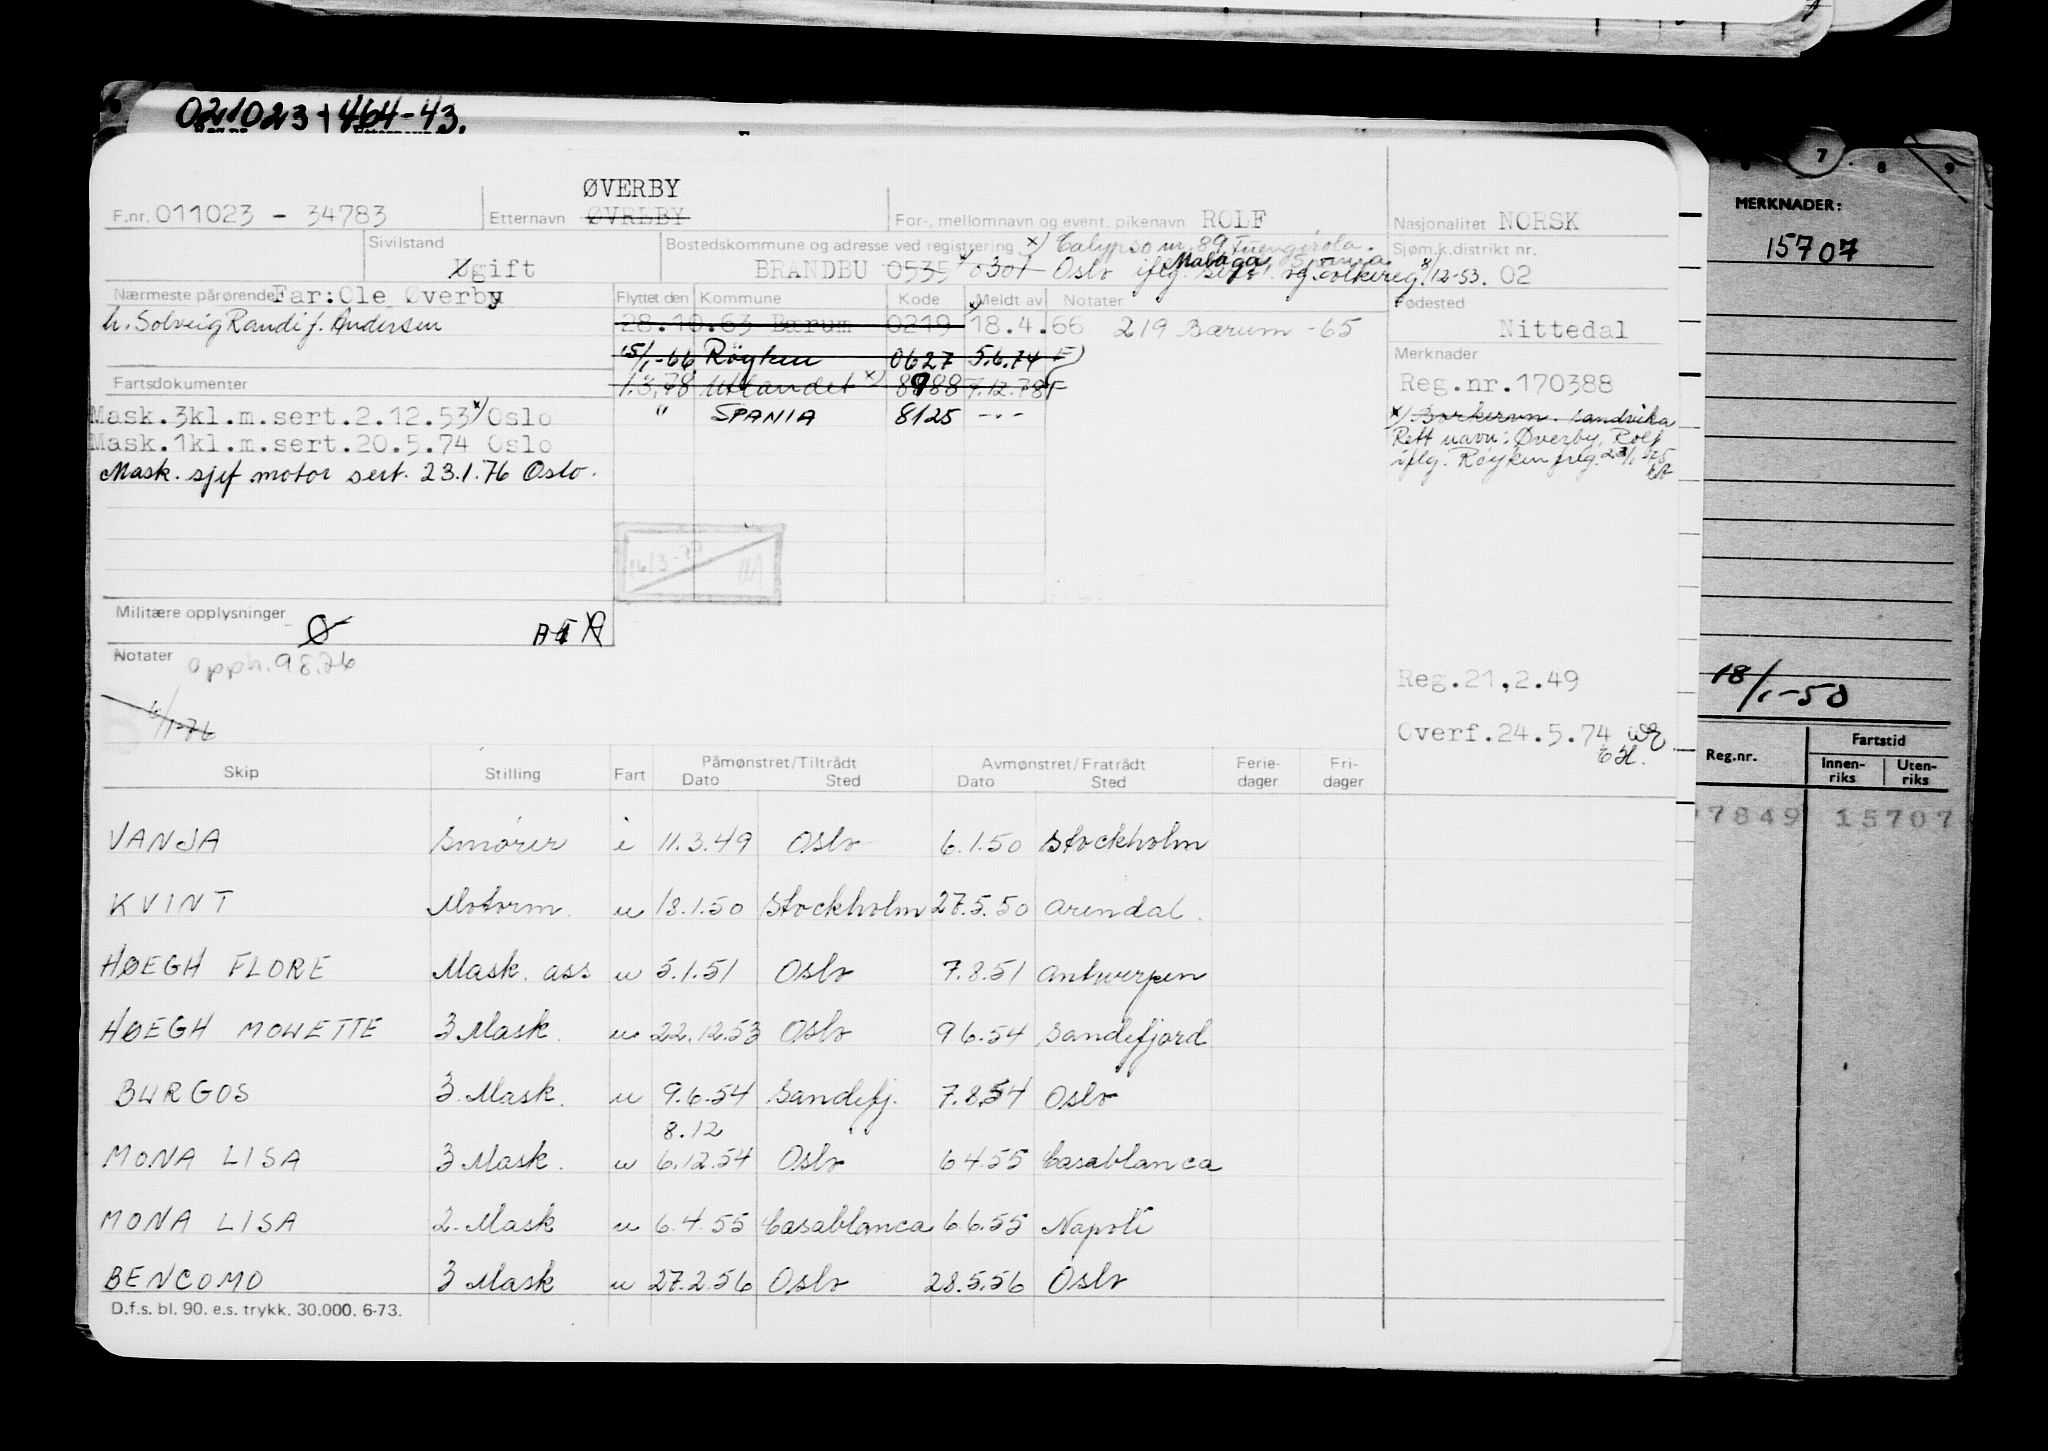 021023 464-43.
ØVERBY
F.nr. 011023 - 34783 Etternavn ØVREBY For-, mellomnavn og event. pikenavn ROLF Nasjonalitet NORSK
Sivilstand Bostedskommune og adresse ved registrering x) Calypso nr. 89 Fuengirola. Sjøm.k.distrikt nr.
Malaga Spania
Ugift BRANDBU 0535 0301 Oslo iflg. og folkereg. 8/12-53. 02
Nærmeste pårørende Far: Ole Øverby Flyttet den Kommune Kode Meldt av Notater Fødested
h. Solveig Randi f. Andersen 28.10.63 Bærum 0219 18.4.66 219 Bærum -65 Nittedal
15/1-66 Røyken 0627 5.6.74 F) Merknader
Fartsdokumenter 1.3.78 Utlandet x) 8988 7.12.78 F Reg.nr.170388
Mask.3kl.m.sert.2.12.53 x) Oslo " SPANIA 8125 -"- x) sandvika
Mask.1kl.m.sert.20.5.74 Oslo Rett navn: Øverby, Rolf
Mask. sjef motor sert. 23.1.76 Oslo. iflg. Røyken freg. 23/1-75
Militære opplysninger Ø
Notater opph. 9 8.76
Reg.21.2.49
6/1-76
Overf.24.5.74
Skip Stilling Fart Påmønstret/Tiltrådt Dato Sted Avmønstret/Fratrådt Dato Sted Ferie-dager Fri-dager
VANJA Smører i 11.3.49 Oslo 6.1.50 Stockholm
KVINT Motorm. u 18.1.50 Stockholm 27.5.50 Arendal.
HØEGH FLORE Mask. ass u 5.1.51 Oslo 7.8.51 Antwerpen
HØEGH MOWETTE 3 Mask. u 22.12.53 Oslo 9.6.54 Sandefjord
BURGOS 3. Mask. u 9.6.54 Sandefj. 7.8.54 Oslo
8.12
MONA LISA 3 Mask. u 6.12.54 Oslo 6 4.55 Casablanca
MONA LISA 2. Mask u 6.4.55 Casablanca 6 6.55 Napoli
BENCOMO 3 Mask u 27.2.56 Oslo 28.5.56 Oslo
D.f.s. bl. 90. e.s. trykk. 30.000. 6-73.
7 8 9
MERKNADER:
15707
18/1-50
Reg.nr. Fartstid
Innen-riks Uten-riks
7849 15707